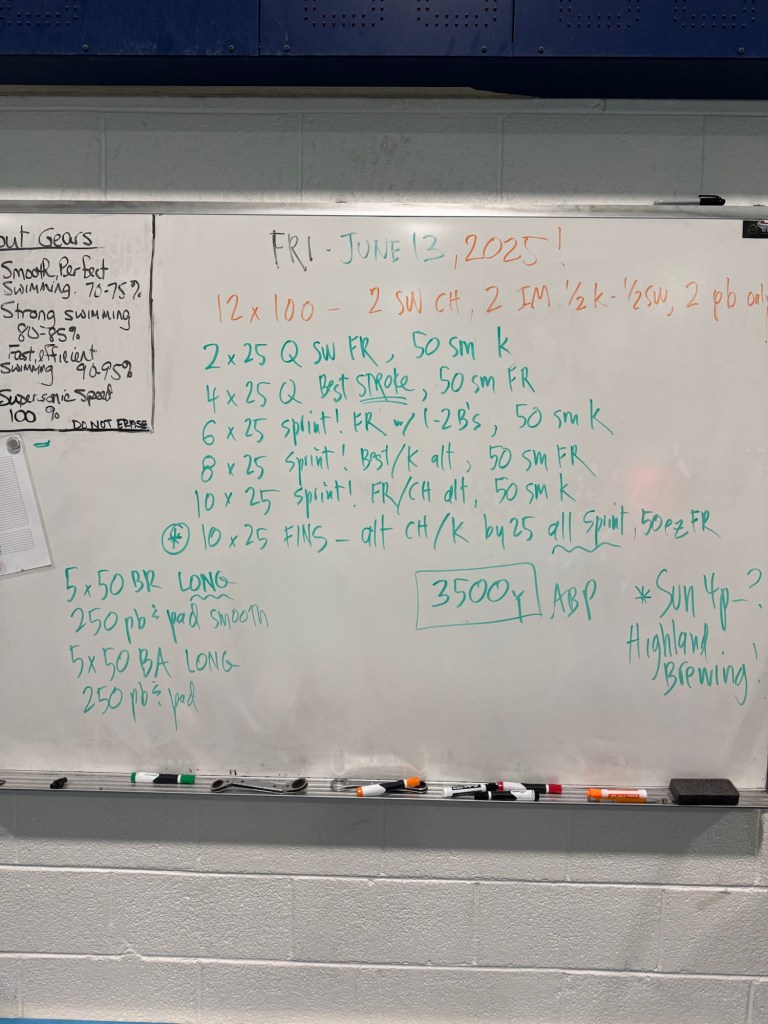 out Gears
Smooth, Perfect
Swimming. 70-75%
Strong swimming
80-85%
Fast, efficient
swimming 90-95%
Supersonic Speed
100 %
DO NOT ERASE
FRI - JUNE 13, 2025!
12 x 100 - 2 SW CH, 2 IM ½ K - ½ SW, 2 pb only
2 x 25 Q SW FR, 50 sm K
4 x 25 Q Best STROKE, 50 sm FR
6 x 25 sprint! FR w/ 1-2 B's, 50 sm K
8 x 25 sprint! Best/K alt, 50 sm FR
10 x 25 sprint! FR/CH alt, 50 sm K
* 10 x 25 FINS - alt CH/K by 25 all sprint, 50 ez FR
5 x 50 BR LONG
250 pb & pad smooth
5 x 50 BA LONG
250 pb & pad
3500y ABP
* Sun 4p-?
Highland
Brewing!